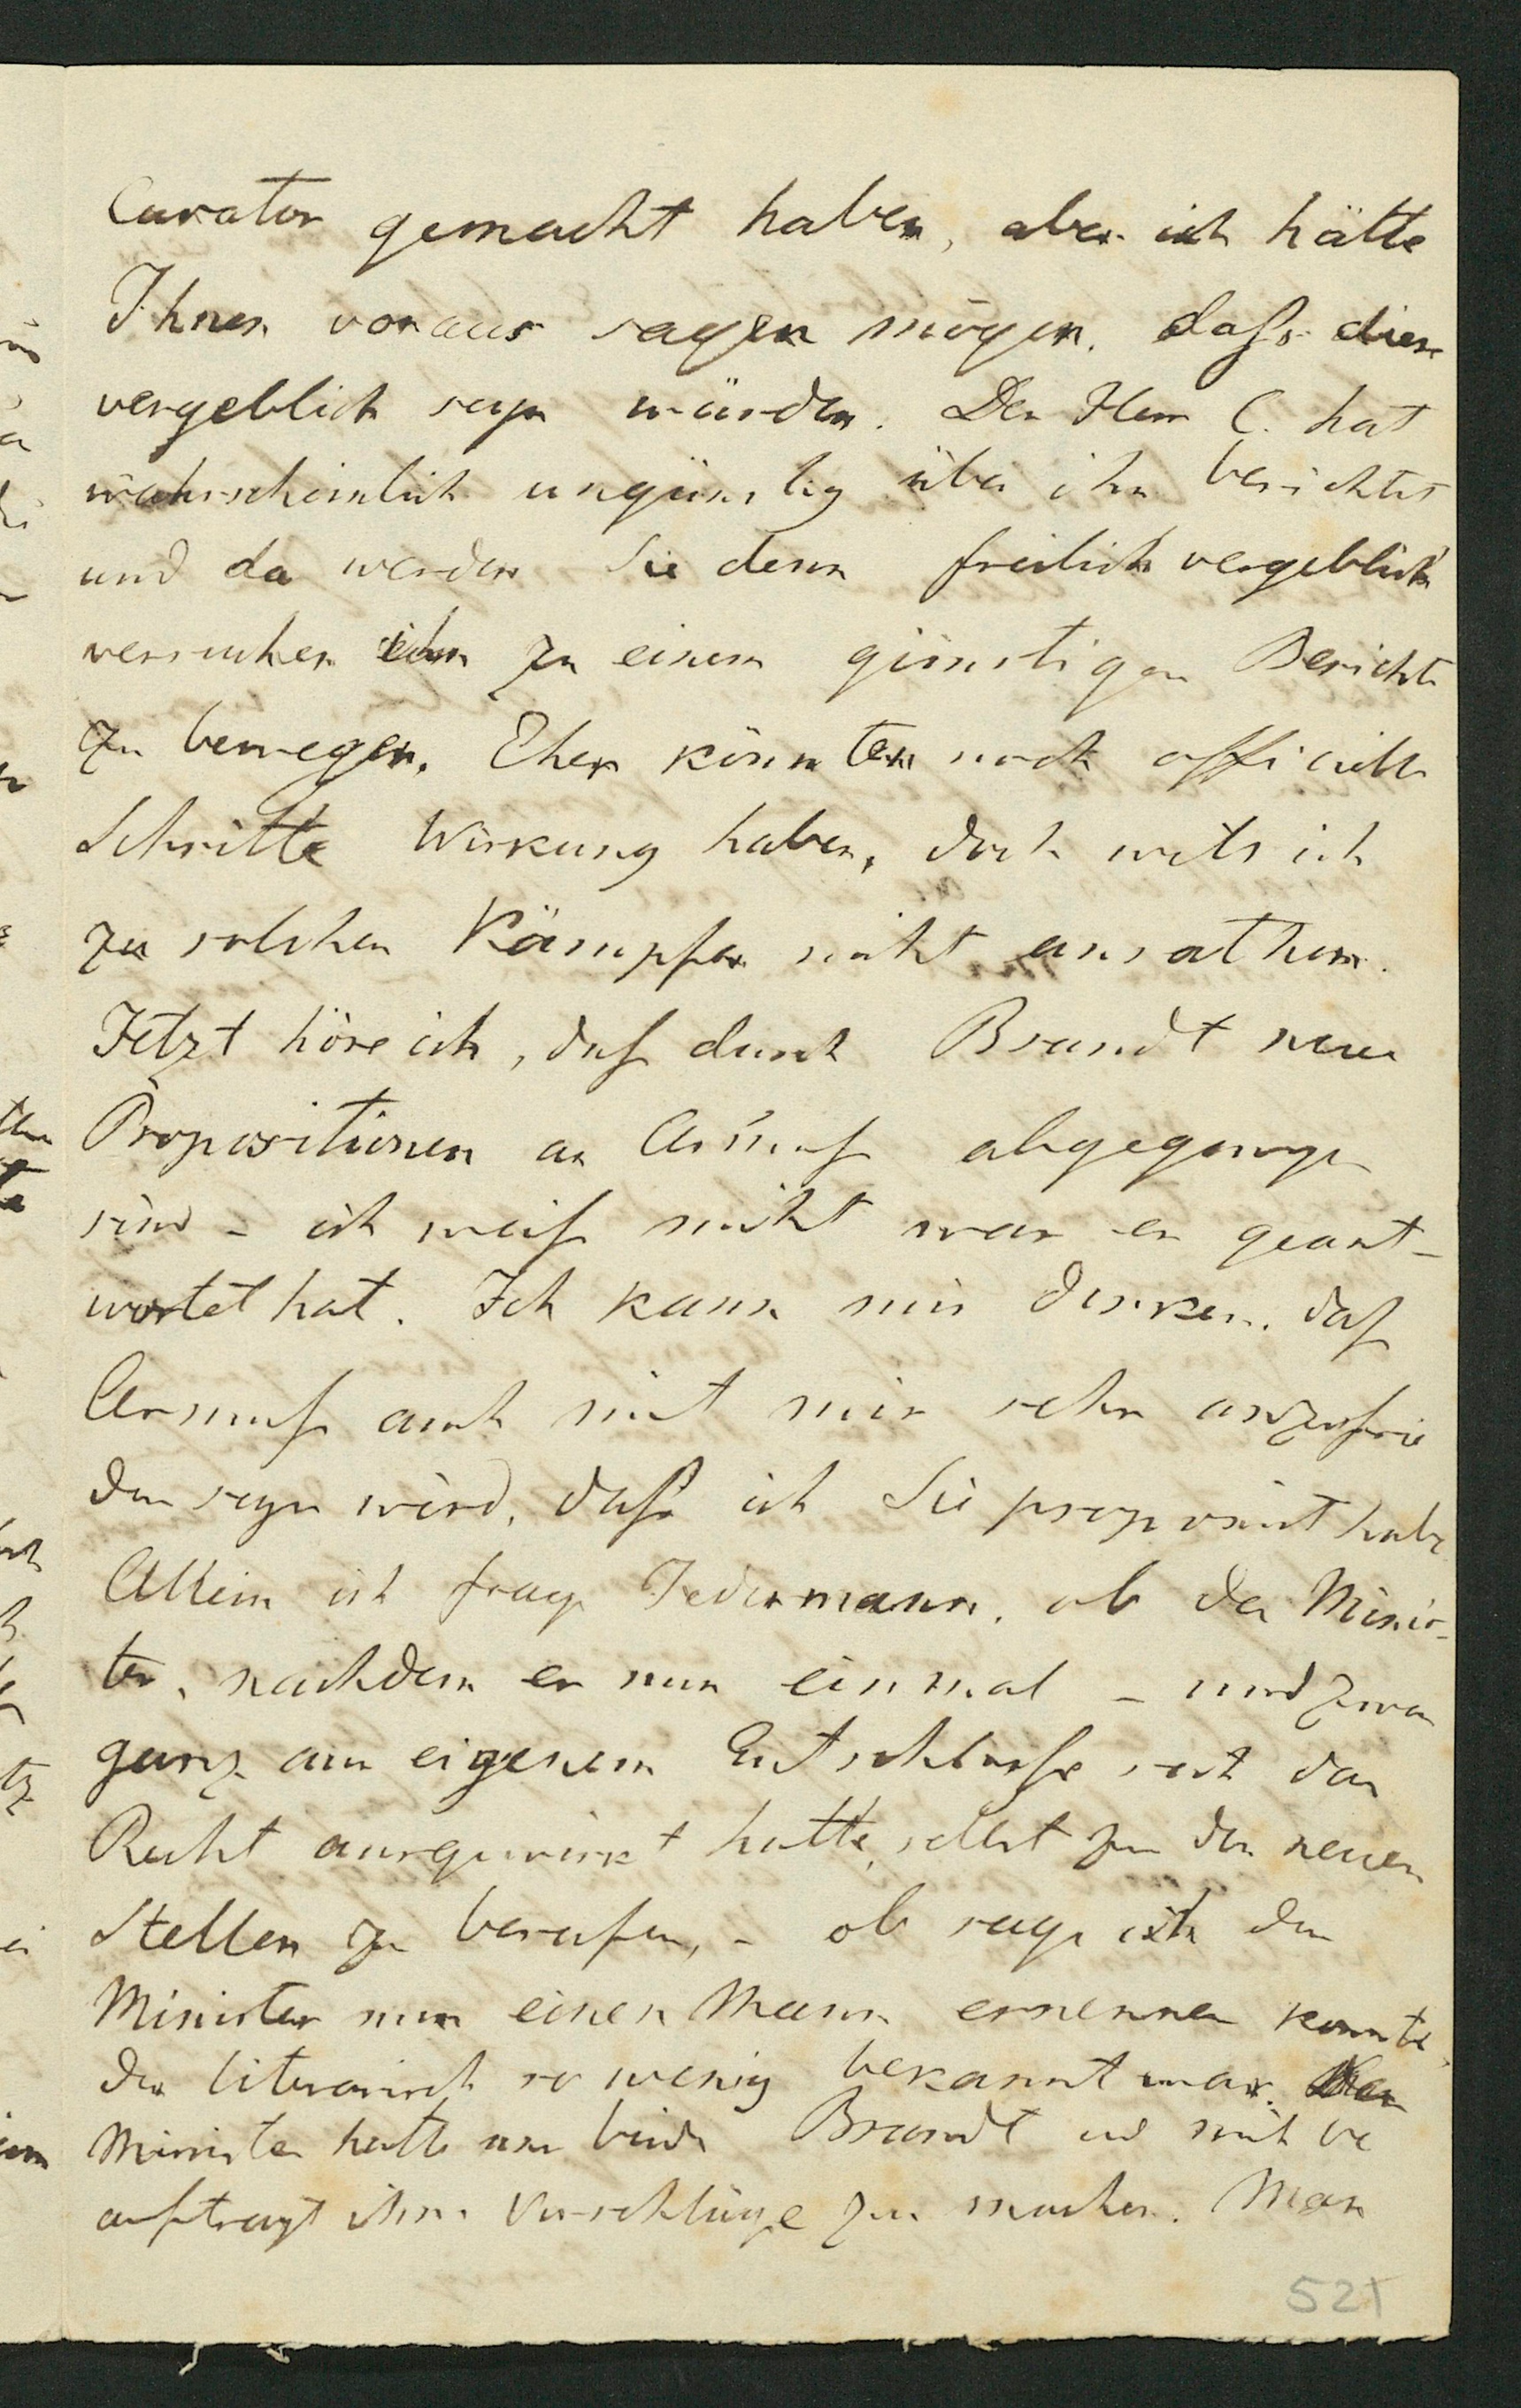 Curator gemacht haben, aber ich hätte
Ihnen voraus sagen mögen, daſs diese
vergeblich seyn würden. Der Herr C. hat
wahrscheinlich ungünstig über ihn berichtet
und da werden Sie denn freilich vergeblich
versuchen ihn zu einem günstigen Bericht
zu bewegen. Eher könnten noch officielle
Schritte Wirkung haben, doch will ich
zu solchen Kämpfen nicht anrathen.
Jetzt höre ich, daſs durch Brandt neue
Propositionen an Asmuſs abgegangen
sind – ich weiſs nicht was er geant-
wortet hat. Ich kann mir denken, daſs
Asmuſs auch mit mir sehr unzufrie
den seyn wird, daſs ich Sie proponirt habe
Allein ich frage Jedermann, ob der Minis-
ter, nachdem er nun einmal – und zwar
ganz aus eigenem Entschlusse sich das
Recht ausgewirkt hatte, selbst zu den neuen
Stellen zu berufen, – ob sage ich der
Minister nun einen Mann ernennen konnte,
der literarisch so wenig bekannt war. Der
Minister hatte uns beide Brandt und mich be
auftragt ihm Vorschläge zu machen. Man
521